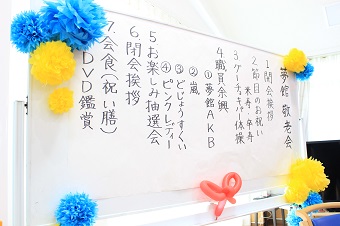 夢館 敬老会
1.開会挨拶
2.節目のお祝い
米寿・卒寿
3.グーチョキパー体操
4.職員余興
①夢館AKB
②嵐
③どじょうすくい
④ピンクレディー
5.お楽しみ抽選会
6.閉会挨拶
7.会食(祝い膳)
DVD鑑賞